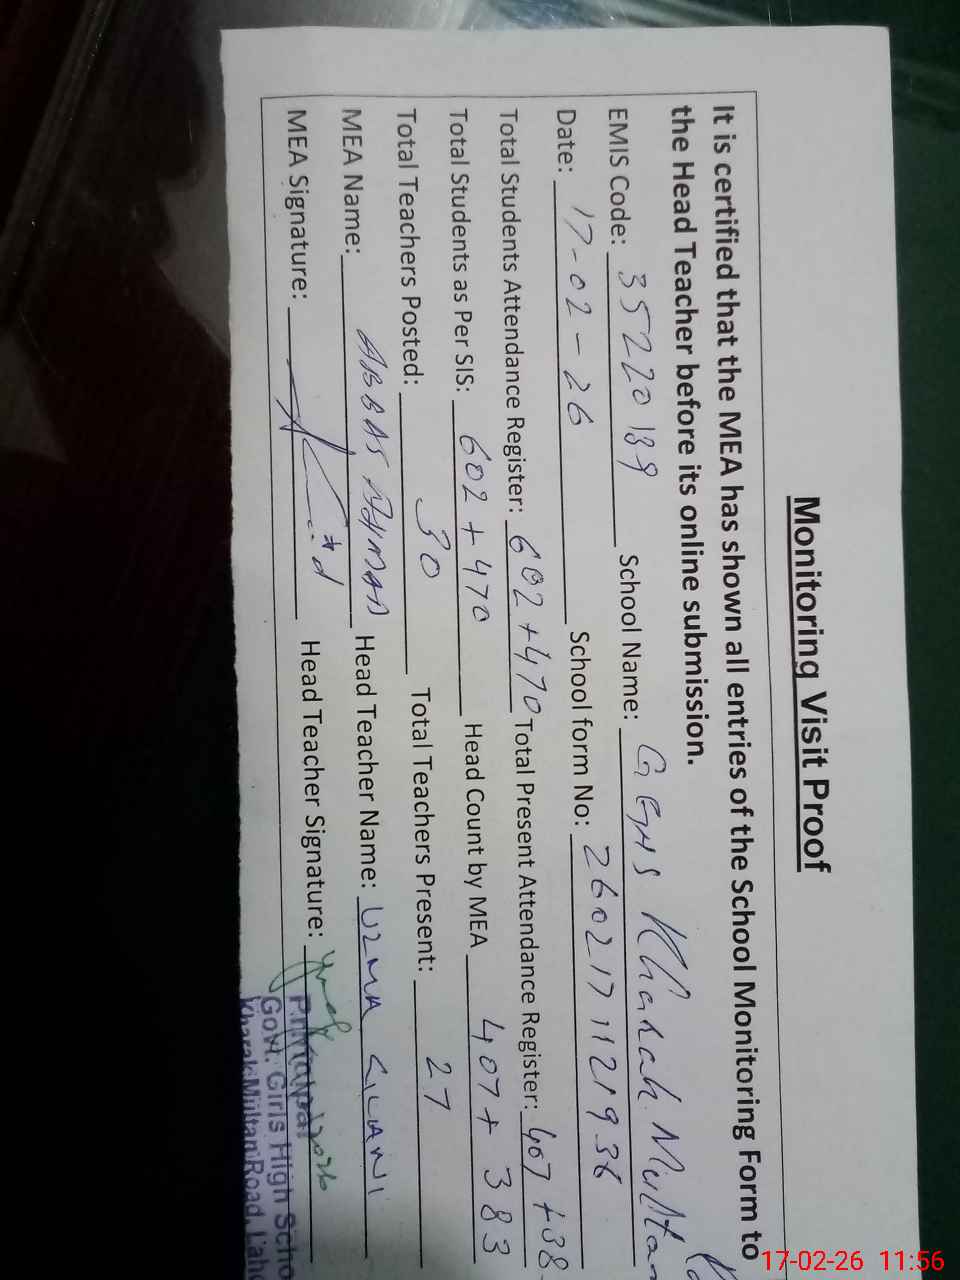 Monitoring Visit Proof
It is certified that the MEA has shown all entries of the School Monitoring Form to
the Head Teacher before its online submission.
EMIS Code: 35220139 School Name: GGHS Kharak Multan
Date: 17-02-26 School form No: 2602171121936
Total Students Attendance Register: 602+470 Total Present Attendance Register: 407+38
Total Students as Per SIS: 602+470 Head Count by MEA 407+383
Total Teachers Posted: 30 Total Teachers Present: 27
MEA Name: ABBAS AHMAD Head Teacher Name: UZMA GILANI
MEA Signature: Head Teacher Signature:
Principal
Govt. Girls High Scho
Kharak Multan Road, Laho
17-02-26 11:56